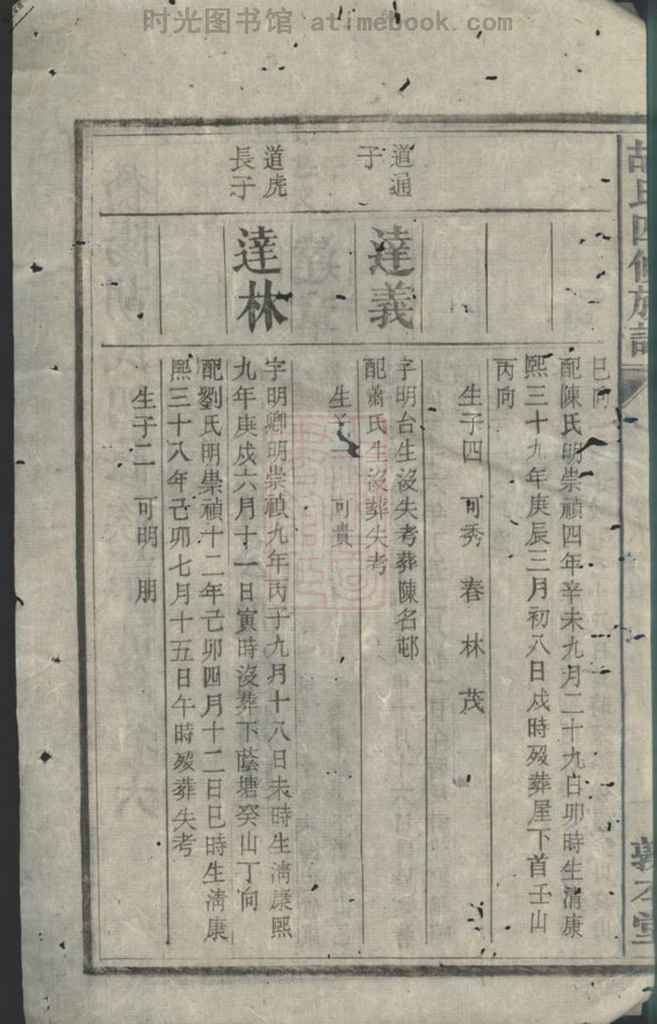 时光图书馆 - atimebook.com
胡氏四修族譜
敦本堂
巳向
配陳氏明崇禎四年辛未九月二十九日卯時生清康
熙三十九年庚辰三月初八日戌時歿葬屋下首壬山
丙向
生子四 可秀 春 林 茂
道通
子
達義
字明台生没失考葬陳名邨
配蕭氏生没葬失考
生子一 可貴
道虎
長子
達林
字明卿明崇禎九年丙子九月十八日未時生清康熙
九年庚戌六月十一日寅時没葬下蔭塘癸山丁向
配劉氏明崇禎十二年己卯四月十二日巳時生清康
熙三十八年己卯七月十五日午時歿葬失考
生子二 可明 朋